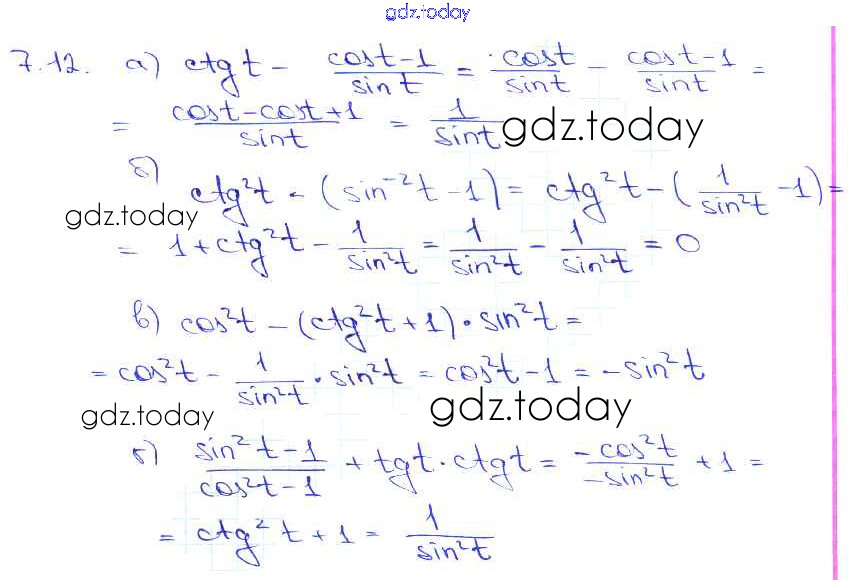 gdz.today
7.12. а) ctg t - \frac{cost-1}{sin t} = \frac{cost}{sint} - \frac{cost-1}{sint} =
= \frac{cost-cost+1}{sint} = \frac{1}{sint} gdz.today
б) ctg²t - (sin⁻²t - 1) = ctg²t - (\frac{1}{sin²t} - 1) =
gdz.today
= 1 + ctg²t - \frac{1}{sin²t} = \frac{1}{sin²t} - \frac{1}{sin²t} = 0
в) cos²t - (ctg²t + 1) · sin²t =
= cos²t - \frac{1}{sin²t} · sin²t = cos²t - 1 = -sin²t
gdz.today gdz.today
г) \frac{sin²t-1}{cos²t-1} + tgt · ctgt = \frac{-cos²t}{-sin²t} + 1 =
= ctg²t + 1 = \frac{1}{sin²t}